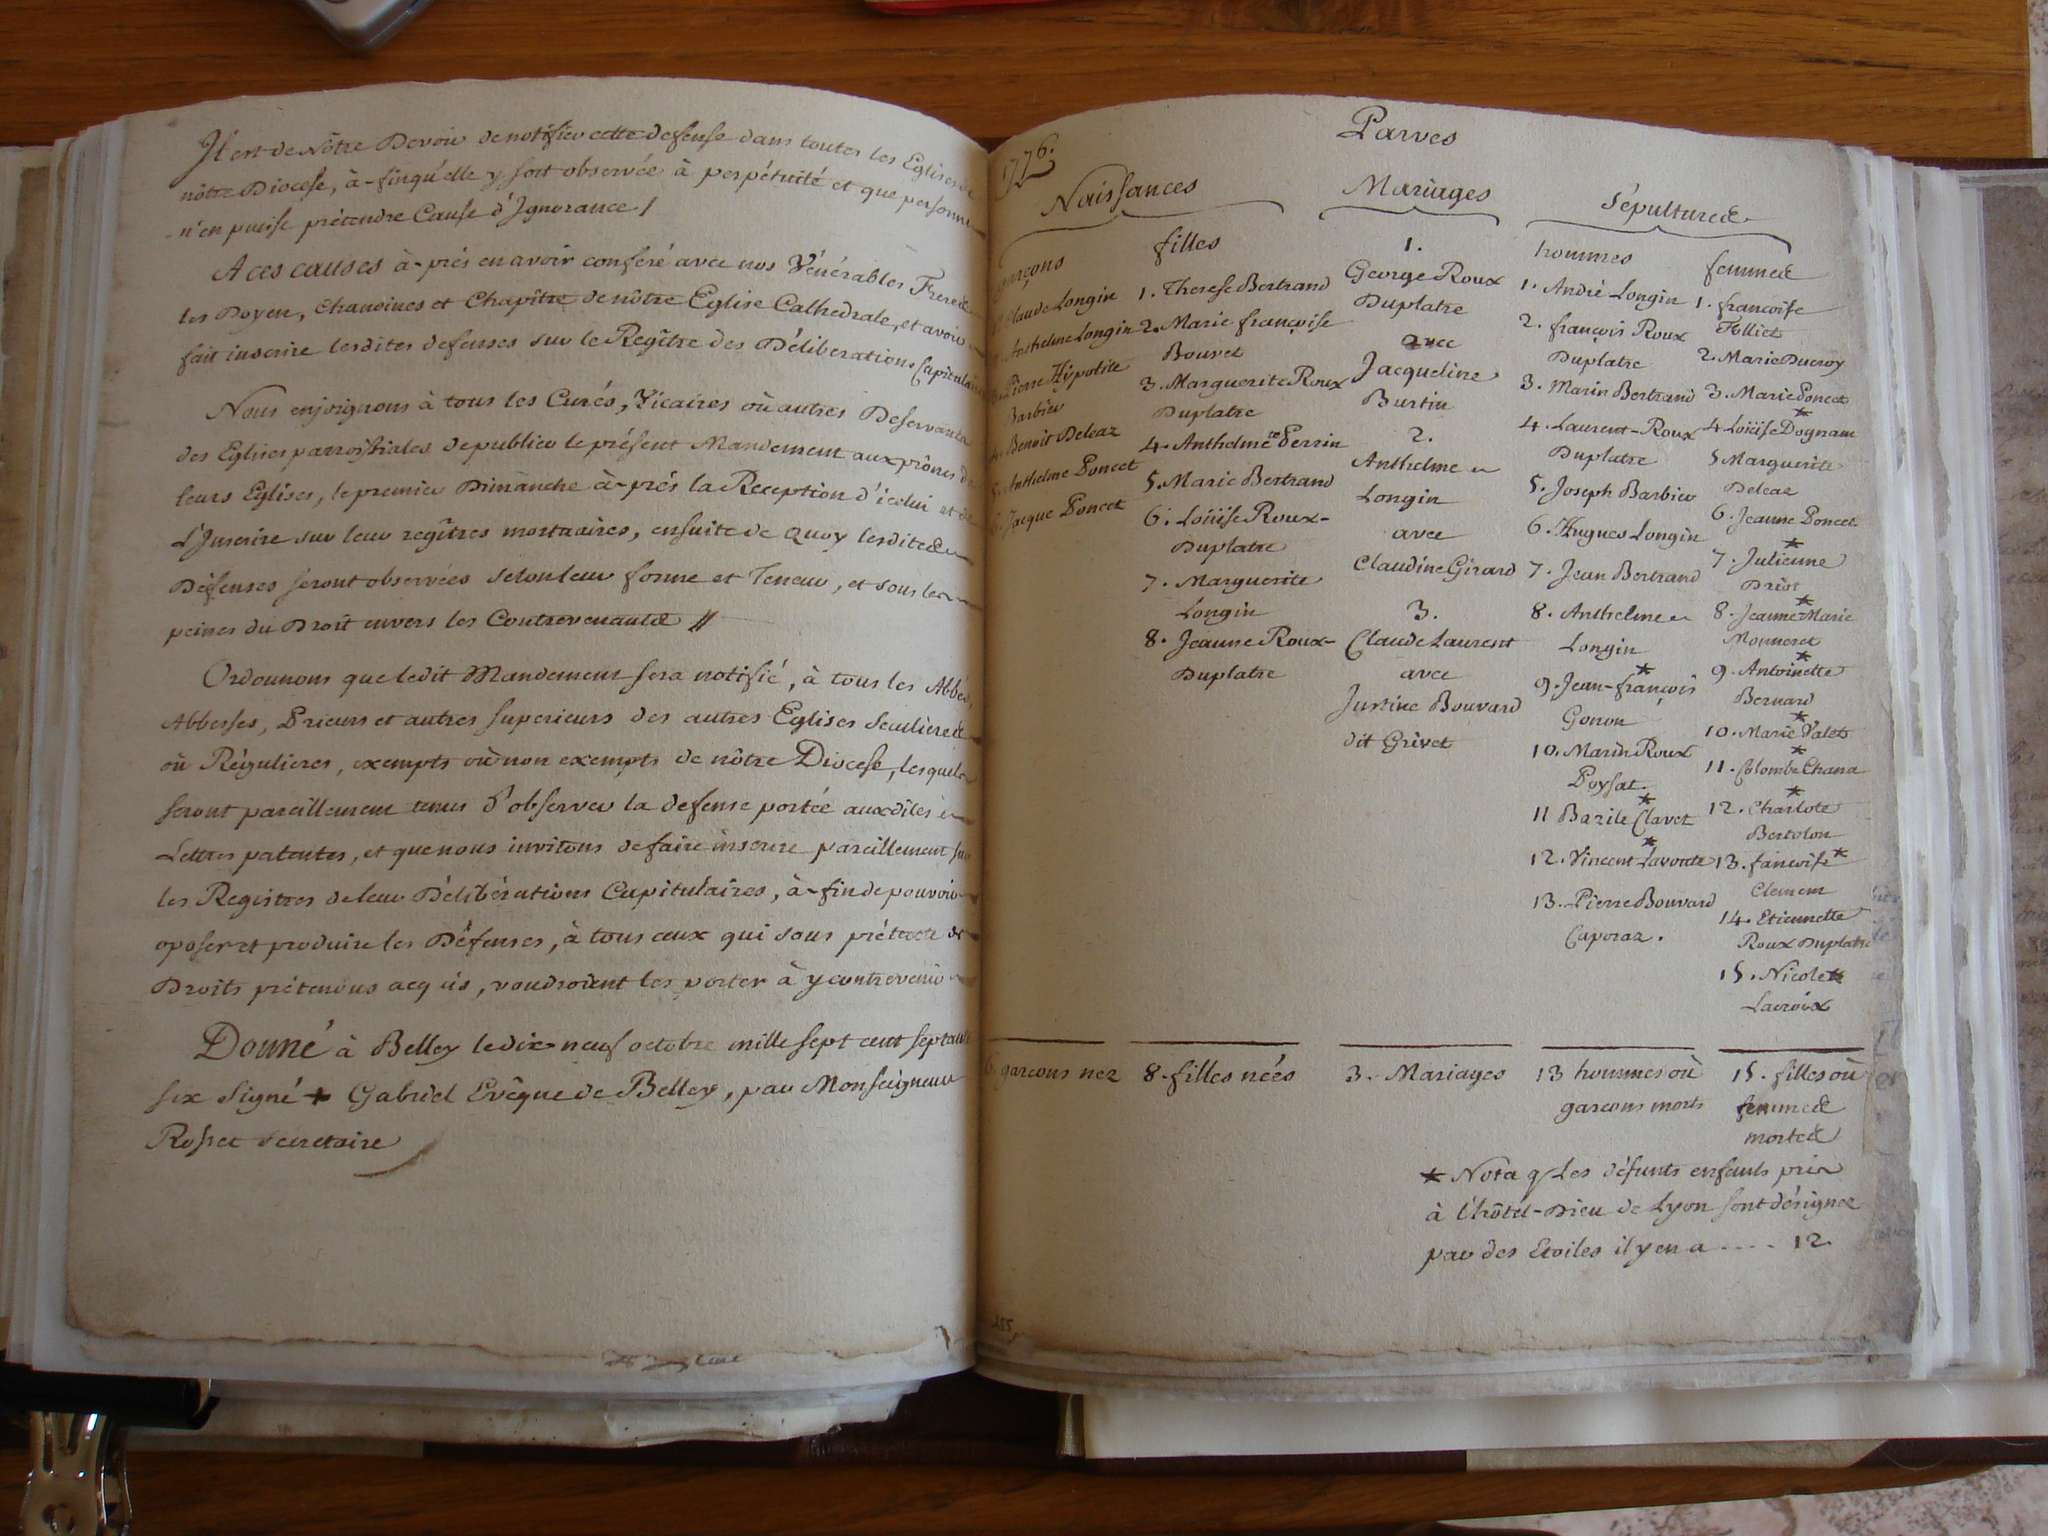 Il est de Nôtre Devoir de notifier cette defense dans toutes les Eglises de
nôtre Diocese, à-finqu'elle y soit observée à perpétuité et que personne
n'en puisse prétendre Cause d'Ignorance /
A ces causes à-près en avoir conféré avec nos Vénérables Freres
les Doyen, Chanoines et Chapître de nôtre Eglise Cathedrale, et avoir
fait inscrire lesdites defenses sur le Regître des Déliberations Capitulaires
Nous enjoignons à tous les Curés, Vicaires où autres Deservants
des Eglises parroissiales de publier le présent Mandement aux prônes de
leurs Eglises, le premier Dimanche à-prés la Reception d'icelui et de
L'Inscrire sur leur regîtres mortuaires, ensuite de Quoy lesdites
Défenses seront observées selon leur forme et Teneur, et sous les
peines du Droit envers les Contrevenants //
Ordonnons que ledit Mandement sera notifié, à tous les Abbés,
Abbesses, Prieurs et autres superieurs des autres Eglises Seculieres
où Régulieres, exempts où non exempts de nôtre Diocese, lesquels
seront pareillement tenus d'observer la defense portée auxdites
Lettres patentes, et que nous invitons de faire inscrire pareillement sur
les Registres de leur Délibérations Capitulaires, à-fin de pouvoir
oposer et produire les Défenses, à tous ceux qui sous prétexte de
Droits prétendus acquis, voudroient les porter à y contrevenir
Donné à Belley le dix neuf octobre mille sept cent septante
six Signé + Gabriel Evêque de Belley, par Monseigneur
Rosset secretaire
Parves
1776.
Naissances
garçons
Claude Longin
Anthelme Longin
Pierre Hÿpolite
Barbier
Benoit Deleaz
5. Anthelme Poncet
6. Jacque Poncet
6. garcons nez
filles
1. Therese Bertrand
2. Marie françoise
Bouvet
3. Marguerite Roux
Duplatre
4. Anthelmete Perrin
5. Marie Bertrand
6. Loüise Roux-
Duplatre
7. Marguerite
Longin
8. Jeanne Roux-
Duplatre
8. filles nées
Mariages
1.
George Roux
Duplatre
avec
Jacqueline
Burtin
2.
Anthelme
Longin
avec
Claudine Girard
3.
Claude Laurent
avec
Justine Bouvard
dit Grivet
3. Mariages
Sépultures
hommes
1. André Longin
2. françois Roux
Duplatre
3. Marin Bertrand
4. Laurent-Roux
Duplatre
5. Joseph Barbier
6. Hugues Longin
7. Jean Bertrand
8. Anthelme
Longin
9. Jean-françois *
Gonon
10. Marin Roux
Poysat.
11 Bazile Clavet *
12. Vincent *
13. Pierre Bouvard
Caporaz.
13 hommes où
garcons morts
femmes
1. francoise
Folliet
2. Marie Ducroy
3. Marie Poncet
4 Loüise Dognam *
5 Marguerite
Deleaz
6. Jeanne Poncet
7. Julienne *
8. Jeanne Marie *
Monneret
9. Antoinette *
Bernard
10. Marie Valet *
11. Colombe Chana *
12. Charlote *
Bertolon
13. fancoise *
Clement
14. Etiennette
Roux Duplatre
15. Nicole *
Lacroix
15. filles où
femmes
mortes
* Nota q Les défunts enfants pris
à l'hôtel-Dieu de Lyon sont désignez
par des Etoiles il y en a .... 12.